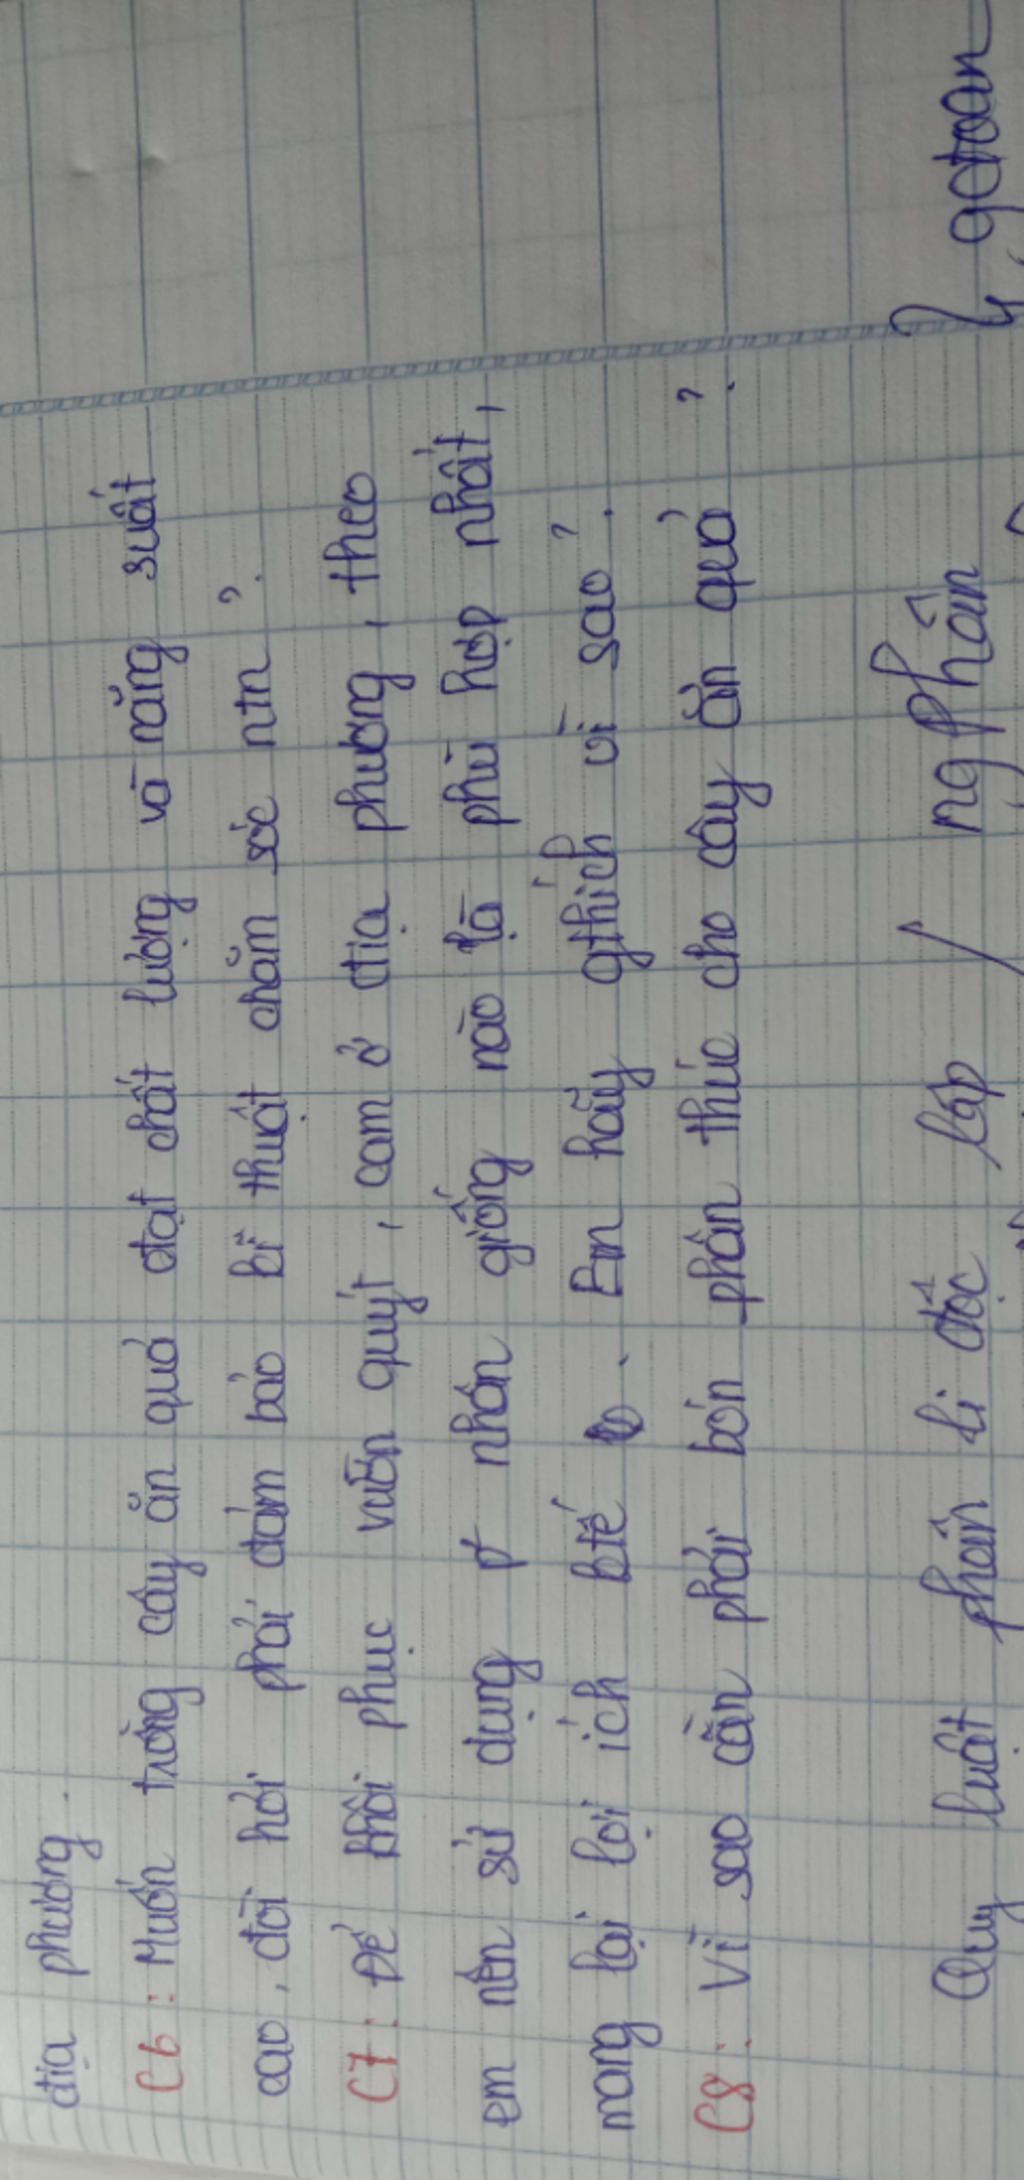 địa phương.
C6: Muốn trồng cây ăn quả đạt chất lượng và năng suất
cao, đòi hỏi phải đảm bảo kĩ thuật chăm sóc ntn?
C7: Để khôi phục vườn quýt, cam ở địa phương, theo
em nên sử dụng p nhân giống nào là phù hợp nhất,
mang lại lợi ích ktế. Em hãy gthích vì sao?
C8: Vì sao cần phải bón phân thúc cho cây ăn quả?
Quy luật phân li độc lập / ng phân } gctoan